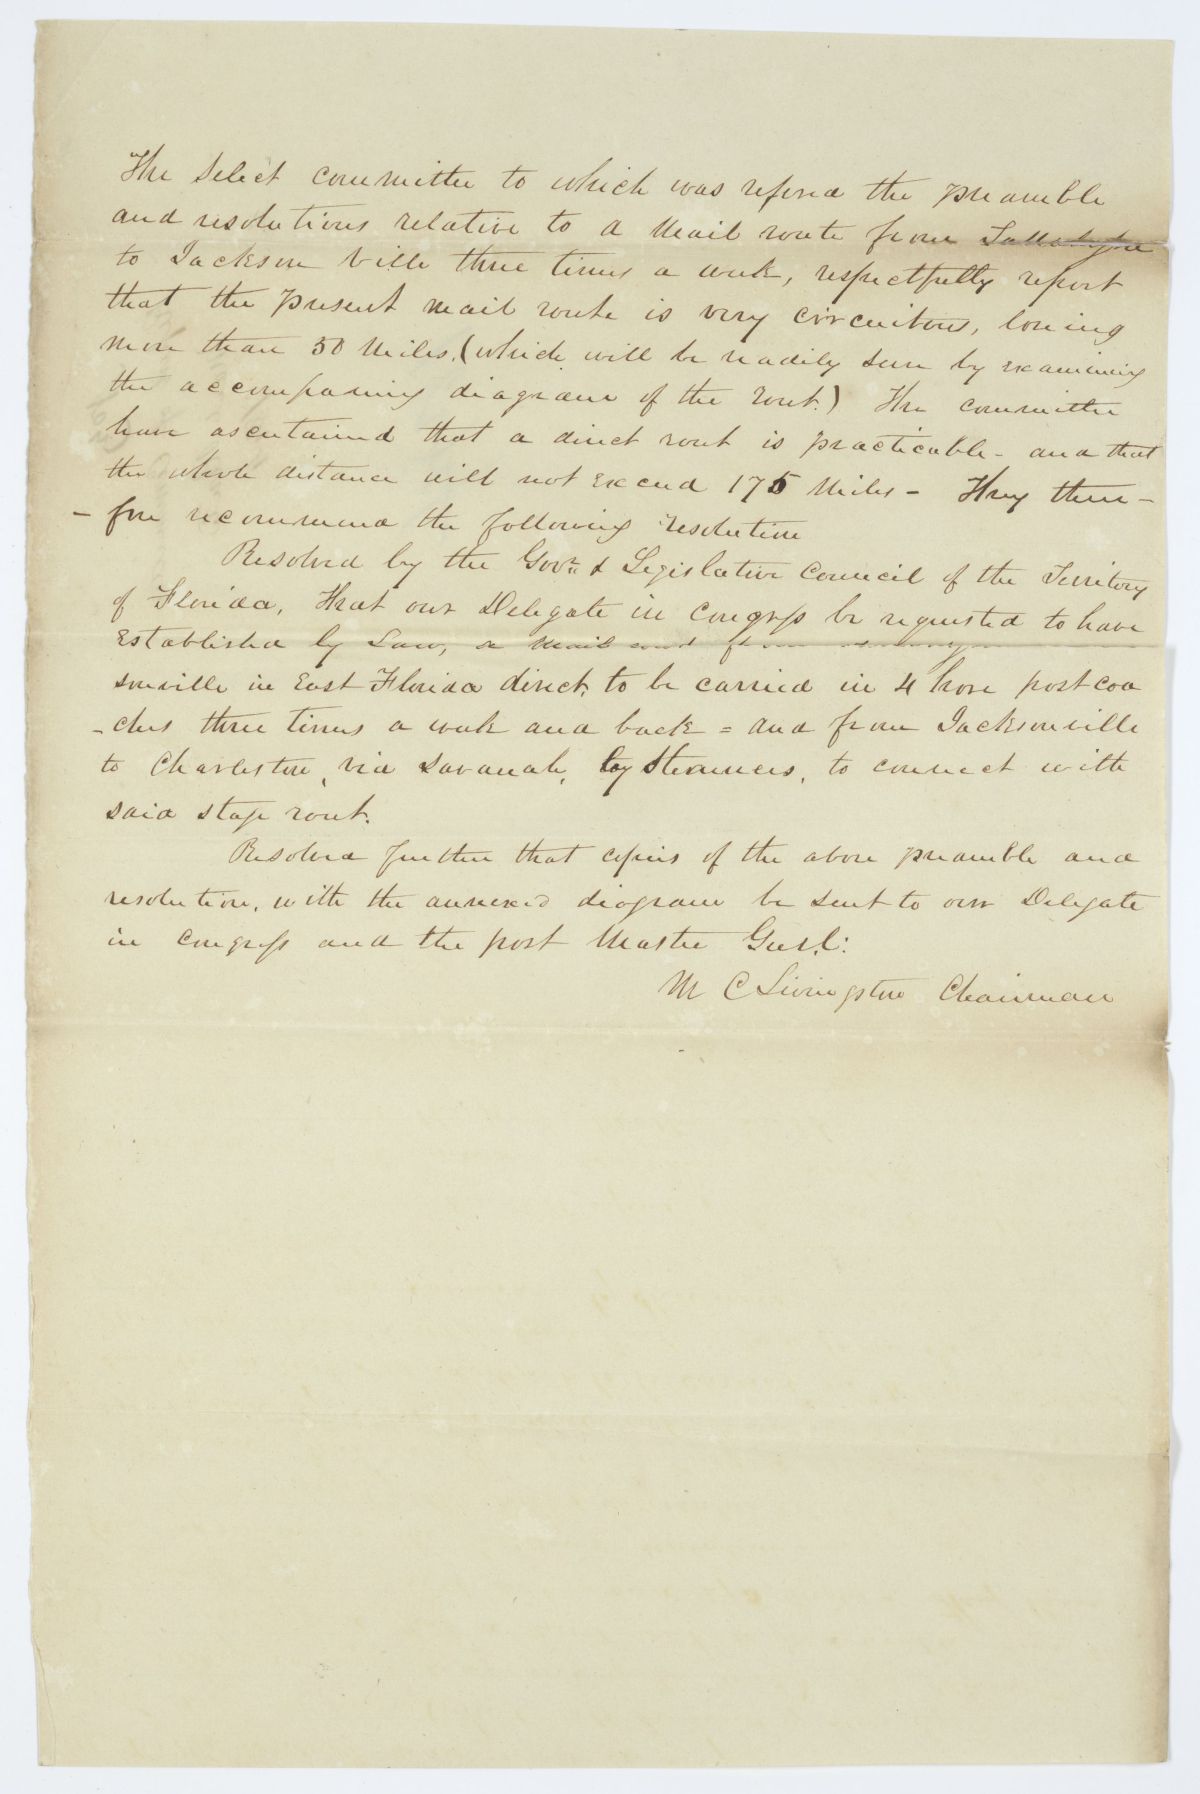 The Select committee to which was refered the preamble
and resolutions relative to a Mail route from Tallahassee
to Jackson Ville three times a week, respectfully report
that the present mail route is very circuitous, loosing
more than 50 Miles, (which will be readily seen by examining
the accompaning diagram of the rout.) The committee
have ascertained that a direct rout is practicable - and that
the whole distance will not exceed 175 Miles - They there-
- fore recommend the following resolution
Resolved by the Govr. & Legislative Council of the Territory
of Florida, That our Delegate in Congress be requested to have
Established by Law, a Mail rout from
sonville in East Florida direct, to be carried in 4 horse post coa
- ches three times a week and back = and from Jacksonville
to Charleston, via Savanah, by Steamers, to connect with
said stage rout.
Resolved further that copies of the above preamble and
resolution, with the annexed diagram be sent to our Delegate
in Congress and the post Master Genl:
M C Livingston Chairman